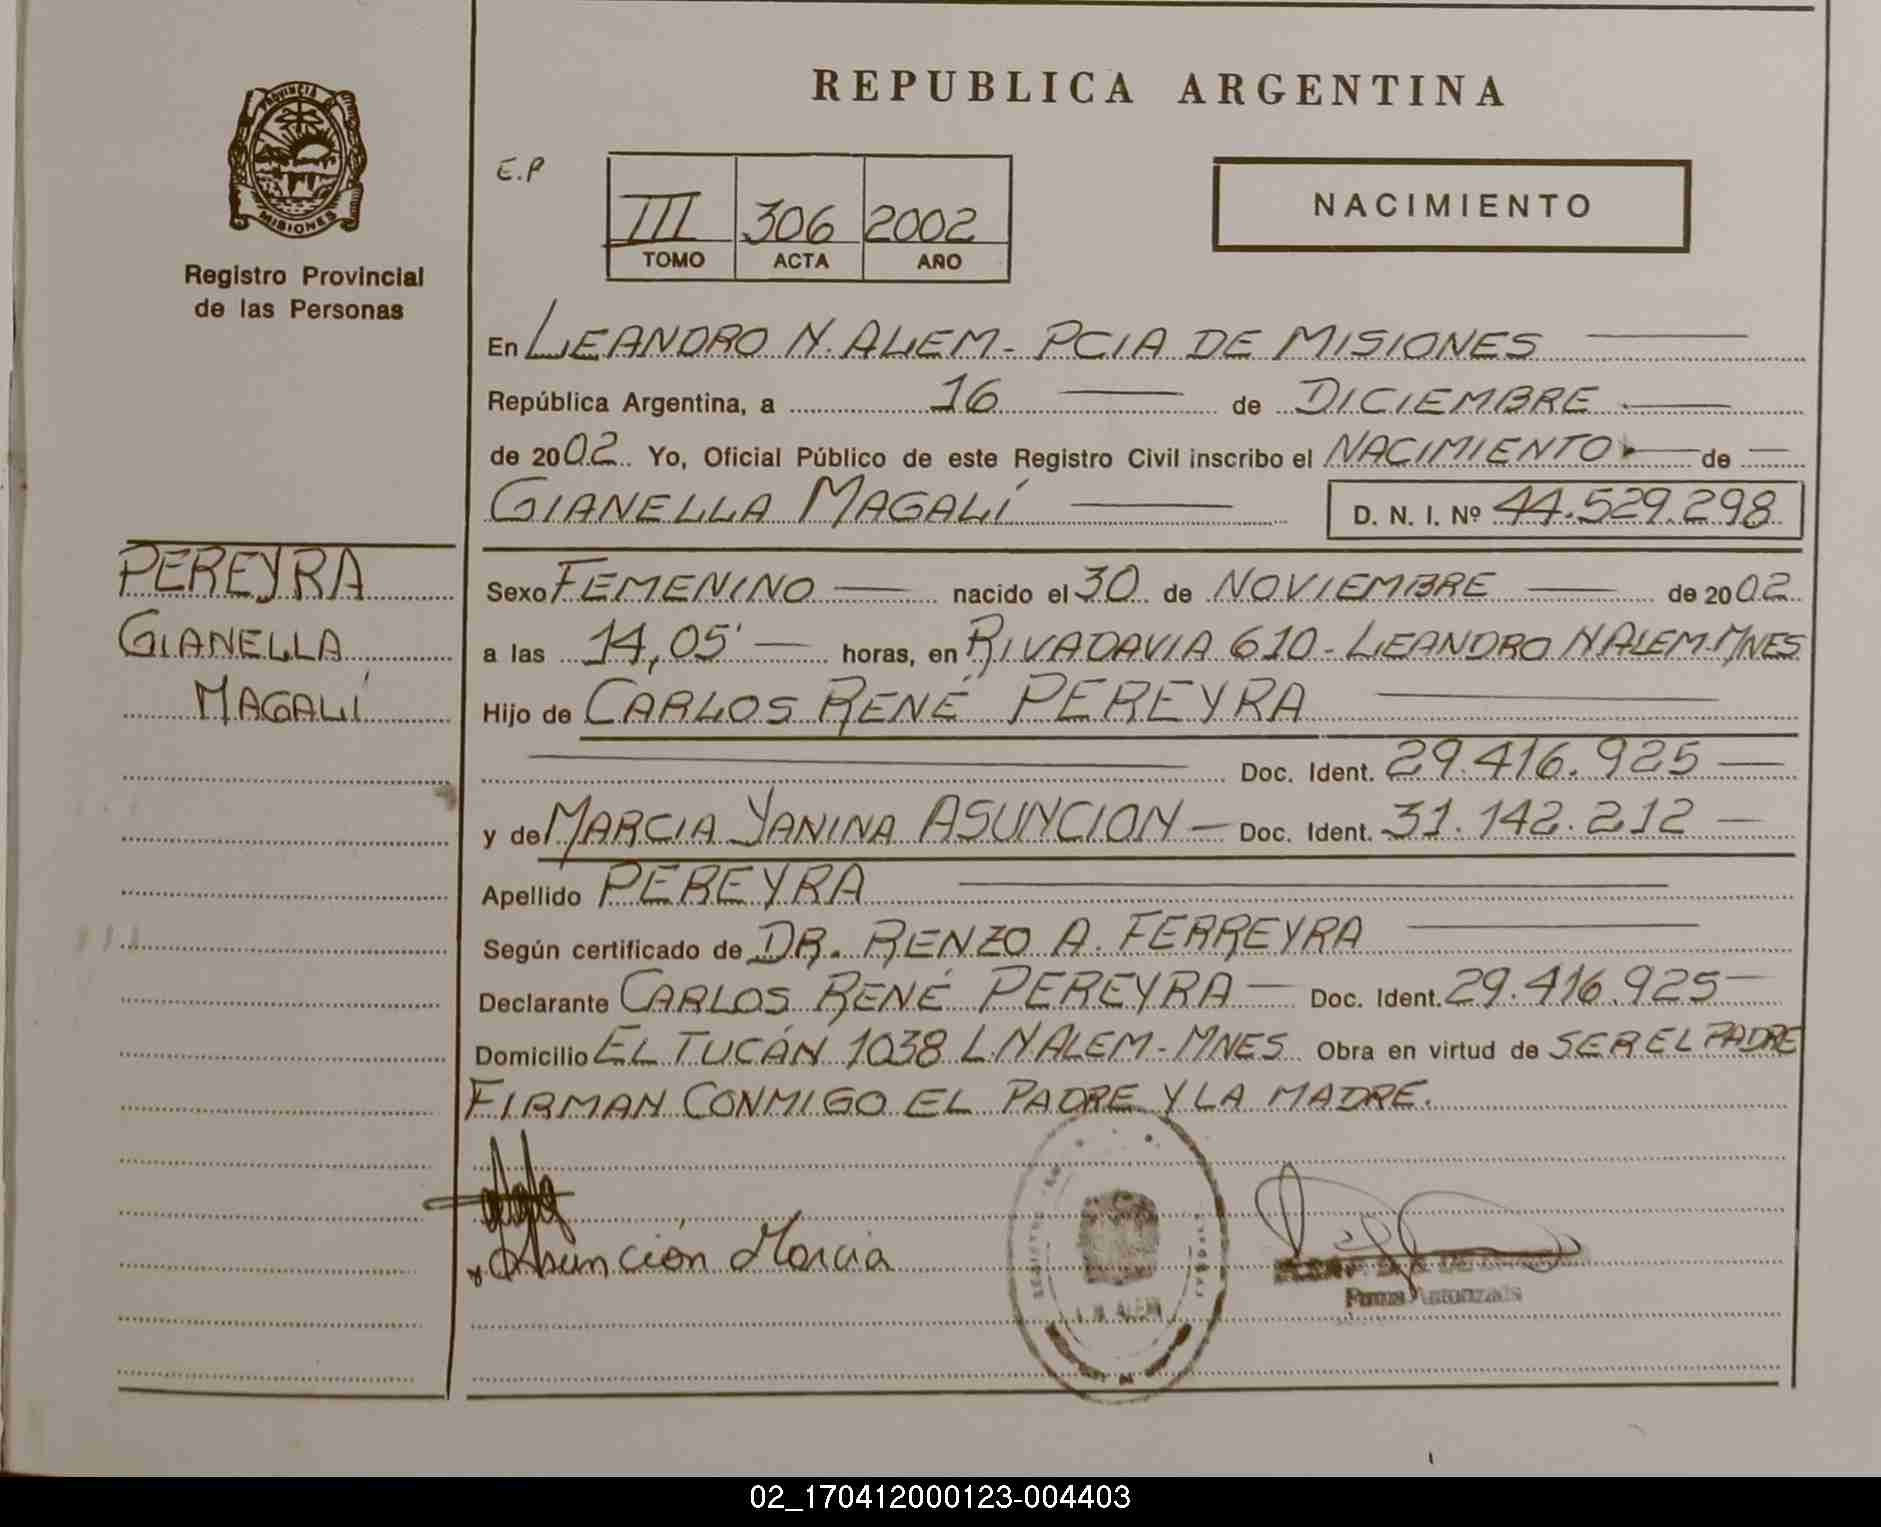 PROVINCIA DE
MISIONES
Registro Provincial
de las Personas
REPUBLICA ARGENTINA
E.P
III 306 2002
TOMO ACTA AÑO
NACIMIENTO
En LEANDRO N. ALEM - PCIA DE MISIONES
República Argentina, a 16 de DICIEMBRE
de 2002. Yo, Oficial Público de este Registro Civil inscribo el NACIMIENTO de
GIANELLA MAGALÍ D. N. I. Nº 44.529.298
PEREYRA
GIANELLA
MAGALÍ
Sexo FEMENINO nacido el 30 de NOVIEMBRE de 2002
a las 14,05' horas, en RIVADAVIA 610 - LEANDRO N ALEM-MNES
Hijo de CARLOS RENÉ PEREYRA
Doc. Ident. 29.416.925
y de MARCIA YANINA ASUNCION Doc. Ident. 31.142.212
Apellido PEREYRA
Según certificado de DR. RENZO A. FERREYRA
Declarante CARLOS RENÉ PEREYRA Doc. Ident. 29.416.925
Domicilio EL TUCÁN 1038 L.N ALEM - MNES Obra en virtud de SER EL PADRE
FIRMAN CONMIGO EL PADRE Y LA MADRE.
Asunción Marcia
L. N. ALEM
02_170412000123-004403